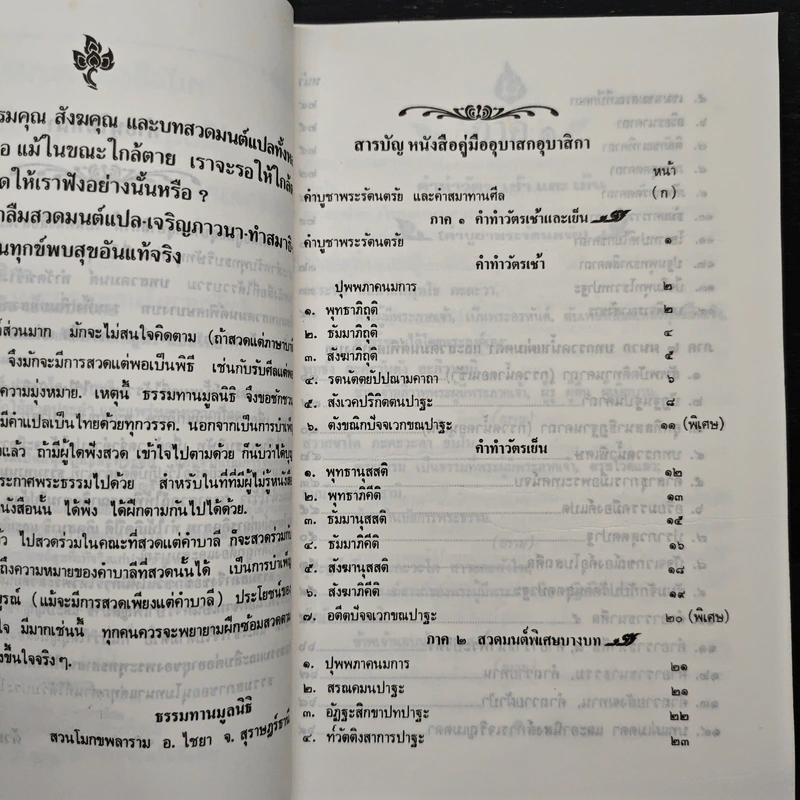 รมคุณ สังฆคุณ และบทสวดมนต์แปลทั้ง
อ แม้ในขณะใกล้ตาย เราจะรอให้ใกล้
ดให้เราฟังอย่างนั้นหรือ ?
าลืมสวดมนต์แปล·เจริญภาวนา·ทำสมาธิ
นทุกข์พบสุขอันแท้จริง
ส่วนมาก มักจะไม่สนใจคิดตาม (ถ้าสวดแต่ภาษาบา
จึงมักจะมีการสวดแต่พอเป็นพิธี เช่นกับรับศีล
ความมุ่งหมาย. เหตุนี้ ธรรมทานมูลนิธิ จึงขอชักชวน
มีคำแปลเป็นไทยด้วยทุกวรรค. นอกจากเป็นการบำเพ็
งแล้ว ถ้ามีผู้ใดฟังสวด เข้าใจไปตามด้วย ก็นับว่าได้
ระกาศพระธรรมไปด้วย สำหรับในที่ที่มีผู้ไม่รู้หนังสือ
นังสือนั้น ได้ฟัง ได้ฝึกตามกันไปได้ด้วย.
ว ไปสวดร่วมในคณะที่สวดแต่คำบาลี ก็จะสวดร่วมกัน
ถึงความหมายของคำบาลีที่สวดนั้นได้ เป็นการบำเพ็ญ
บูรณ์ (แม้จะมีการสวดเพียงแต่คำบาลี) ประโยชน์ของ
ใจ มีมากเช่นนี้ ทุกคนควรจะพยายามฝึกซ้อมสวด
งขึ้นใจจริงๆ.
ธรรมทานมูลนิธิ
สวนโมกขพลาราม อ. ไชยา จ. สุราษฎร์ธานี
สารบัญ หนังสือคู่มืออุบาสกอุบาสิกา
หน้า
คำบูชาพระรัตนตรัย และคำสมาทานศีล (ก)
ภาค ๑ คำทำวัตรเช้าและเย็น
คำบูชาพระรัตนตรัย ๑
คำทำวัตรเช้า
ปุพพภาคนมการ ๒
๑. พุทธาภิถุติ ๒
๒. ธัมมาภิถุติ ๔
๓. สังฆาภิถุติ ๕
๔. รตนัตตยัปปณามคาถา ๖
๕. สังเวคปริกิตตนปาฐะ ๘
๖. ตังขณิกปัจจเวกขณปาฐะ ๑๑ (พิเศษ)
คำทำวัตรเย็น
๑. พุทธานุสสติ ๑๒
๒. พุทธาภิคีติ ๑๓
๓. ธัมมานุสสติ ๑๕
๔. ธัมมาภิคีติ ๑๖
๕. สังฆานุสสติ ๑๘
๖. สังฆาภิคีติ ๑๙
๗. อตีตปัจจเวกขณปาฐะ ๒๐ (พิเศษ)
ภาค ๒ สวดมนต์พิเศษบางบท
๑. ปุพพภาคนมการ ๒๑
๒. สรณคมนปาฐะ ๒๑
๓. อัฏฐะสิกขาปทปาฐะ ๒๒
๔. ท๎วัตติงสาการปาฐะ ๒๓